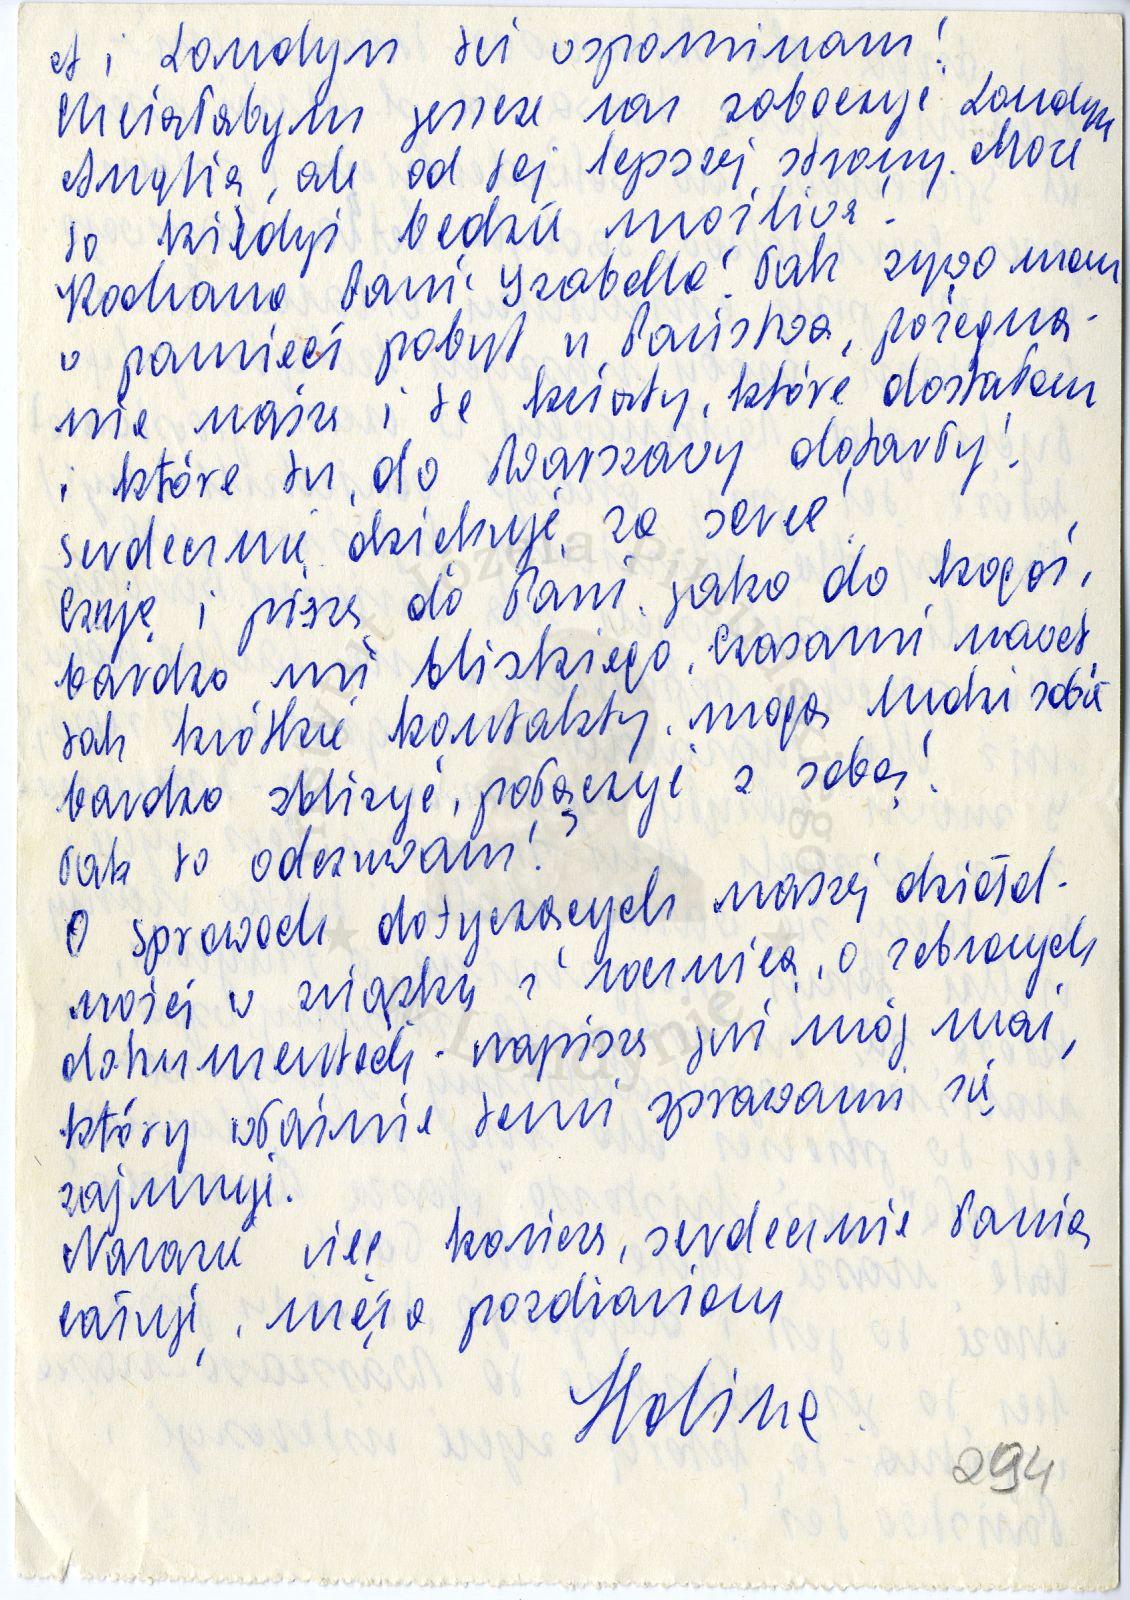 A i Londyn też wspominam!
Chciałabym jeszcze raz zobaczyć Londyn
Anglię, ale od tej lepszej strony. Może
to kiedyś będzie możliwe!
Kochana Pani Izabello! Tak żywo mam
w pamięci pobyt u Państwa, pożegna-
nie nasze i te kwiaty, które dostałam
i które tu, do Warszawy dotarły!
Serdecznie dziękuję za serce!
Czuję i piszę do Pani jako do kogoś,
bardzo mi bliskiego. Czasami nawet
tak krótkie kontakty, mogą ludzi sobie
bardzo zbliżyć, połączyć z sobą!
Tak to odczuwam!
O sprawach dotyczących naszej działal-
ności w związku z rocznicą, o zebranych
dokumentach - napisze już mój mąż,
który właśnie temi sprawami się
zajmuje.
Narazie więc kończę, serdecznie Panią
całuję, męża pozdrawiam
Halina
294
Instytut Józefa Piłsudskiego
w Londynie